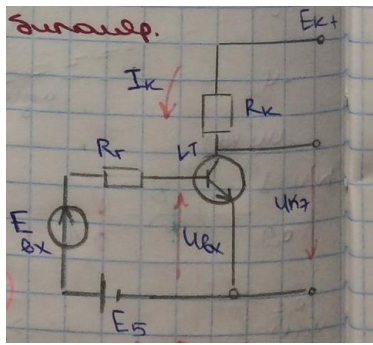 Биполяр.
Eк+
Iк
Rк
Rг
VT
E вх
Uвх
Uкэ
Eб